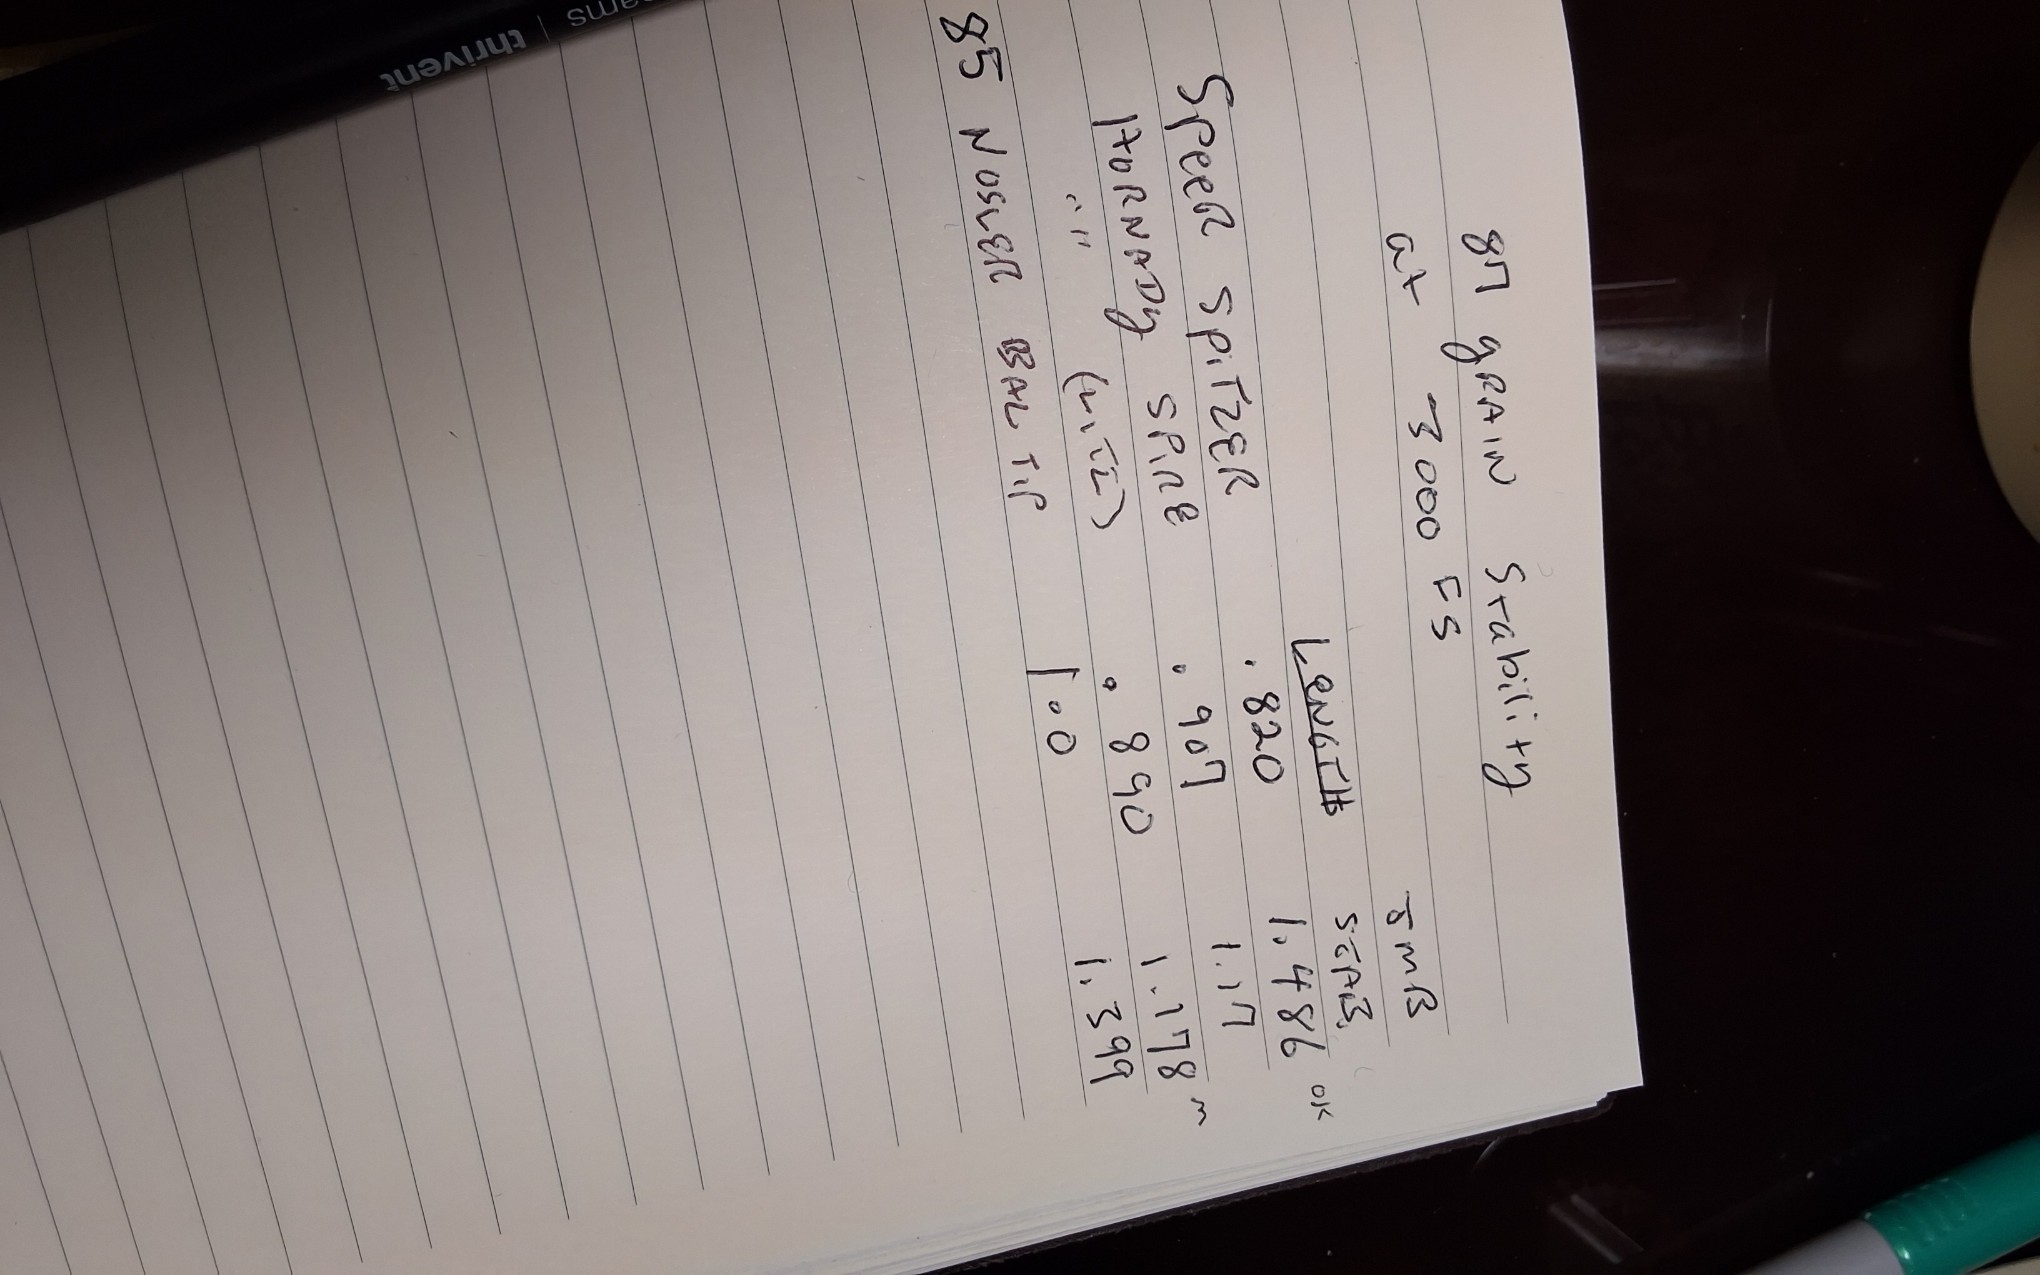 87 gRAIN Stability
at ~3000 FS JMB
LENGTH STAB
SPeeR SPiTZER .820 1.486 OK
HORNADy SPIRE .907 1.17
" " .890 1.178 m
85 NOSLER BAL TIP 1.0 1.399
thrivent |